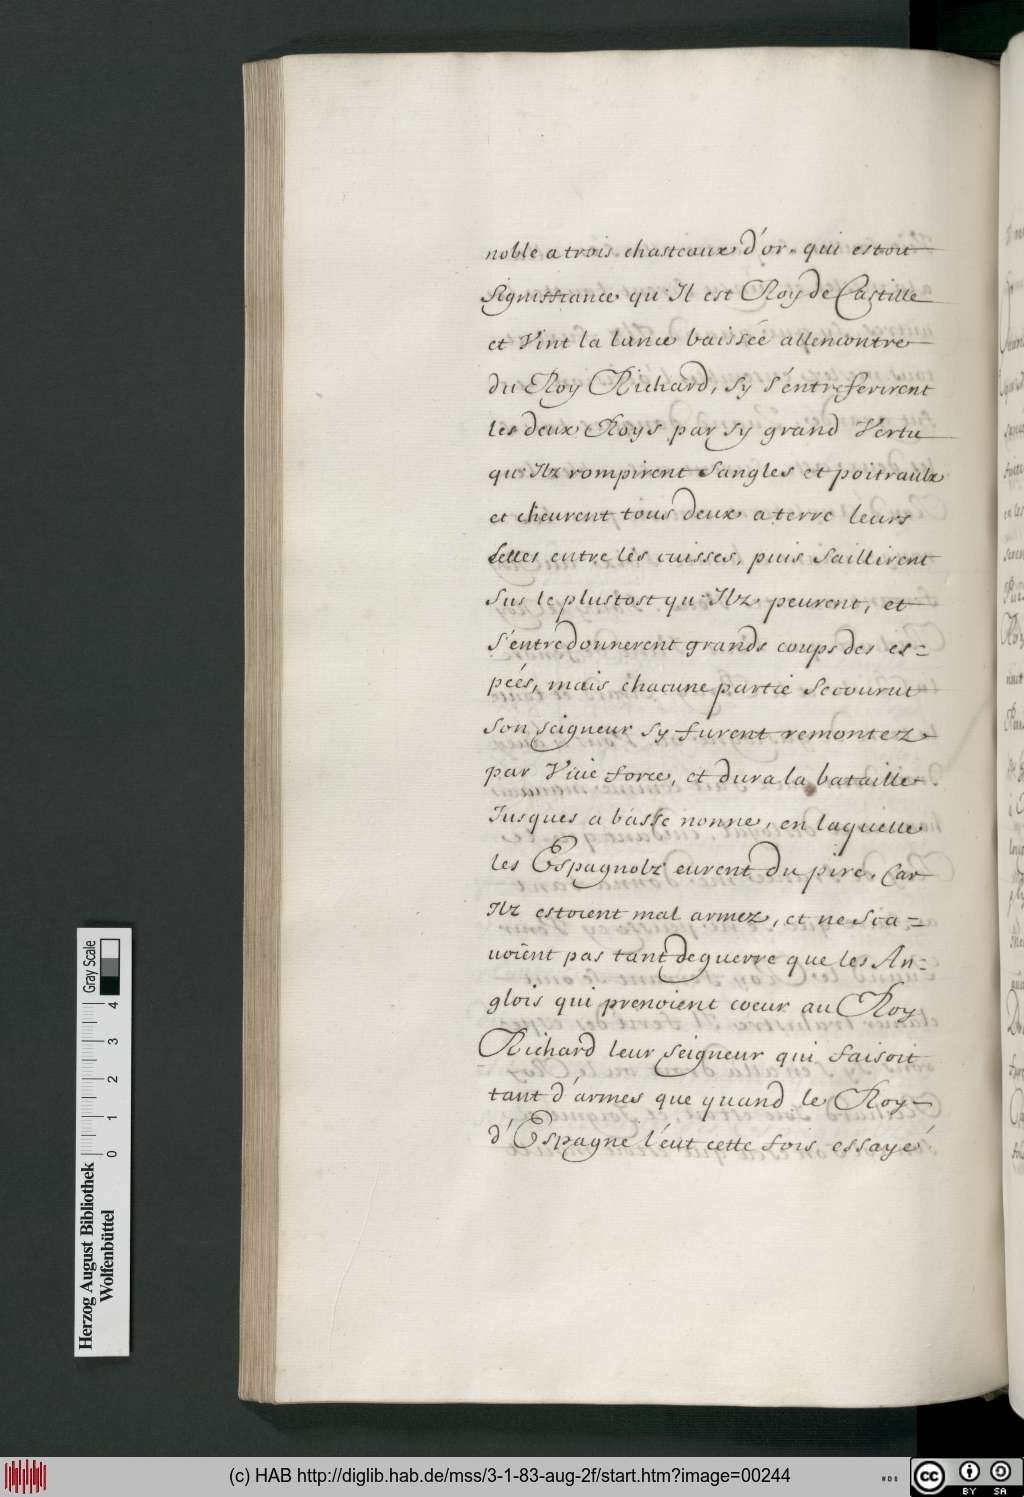 noble a trois chasteaux d'or qui estoit
signiffiance qu'Il est Roy de Castille
et Vint la lance baissée allencontre
du Roy Richard, sy s'entreferirent
les deux Roys par sy grand Vertu
qu'Ilz rompirent sangles et poitraulx
et cheurent tous deux a terre leurs
selles entre les cuisses, puis saillirent
sus le plustost qu'Ilz peurent, et
s'entredonnerent grands coups des es=
peés, mais chacune partie secourut
son seigneur sy furent remontez
par Viue force, et dura la bataille
Jusques a basse nonne, en laquelle
les Espagnolz eurent du pire, Car
Ilz estoient mal armez, et ne sca=
uoient pas tant de guerre que les An=
glois qui prenoient coeur au Roy
Richard leur seigneur qui faisoit
tant d'armes que quand le Roy
d'Espagne l'eut cette fois essayé
Herzog August Bibliothek
Wolfenbüttel
0 1 2 3 4
Gray Scale
(c) HAB http://diglib.hab.de/mss/3-1-83-aug-2f/start.htm?image=00244
WDB
cc BY SA